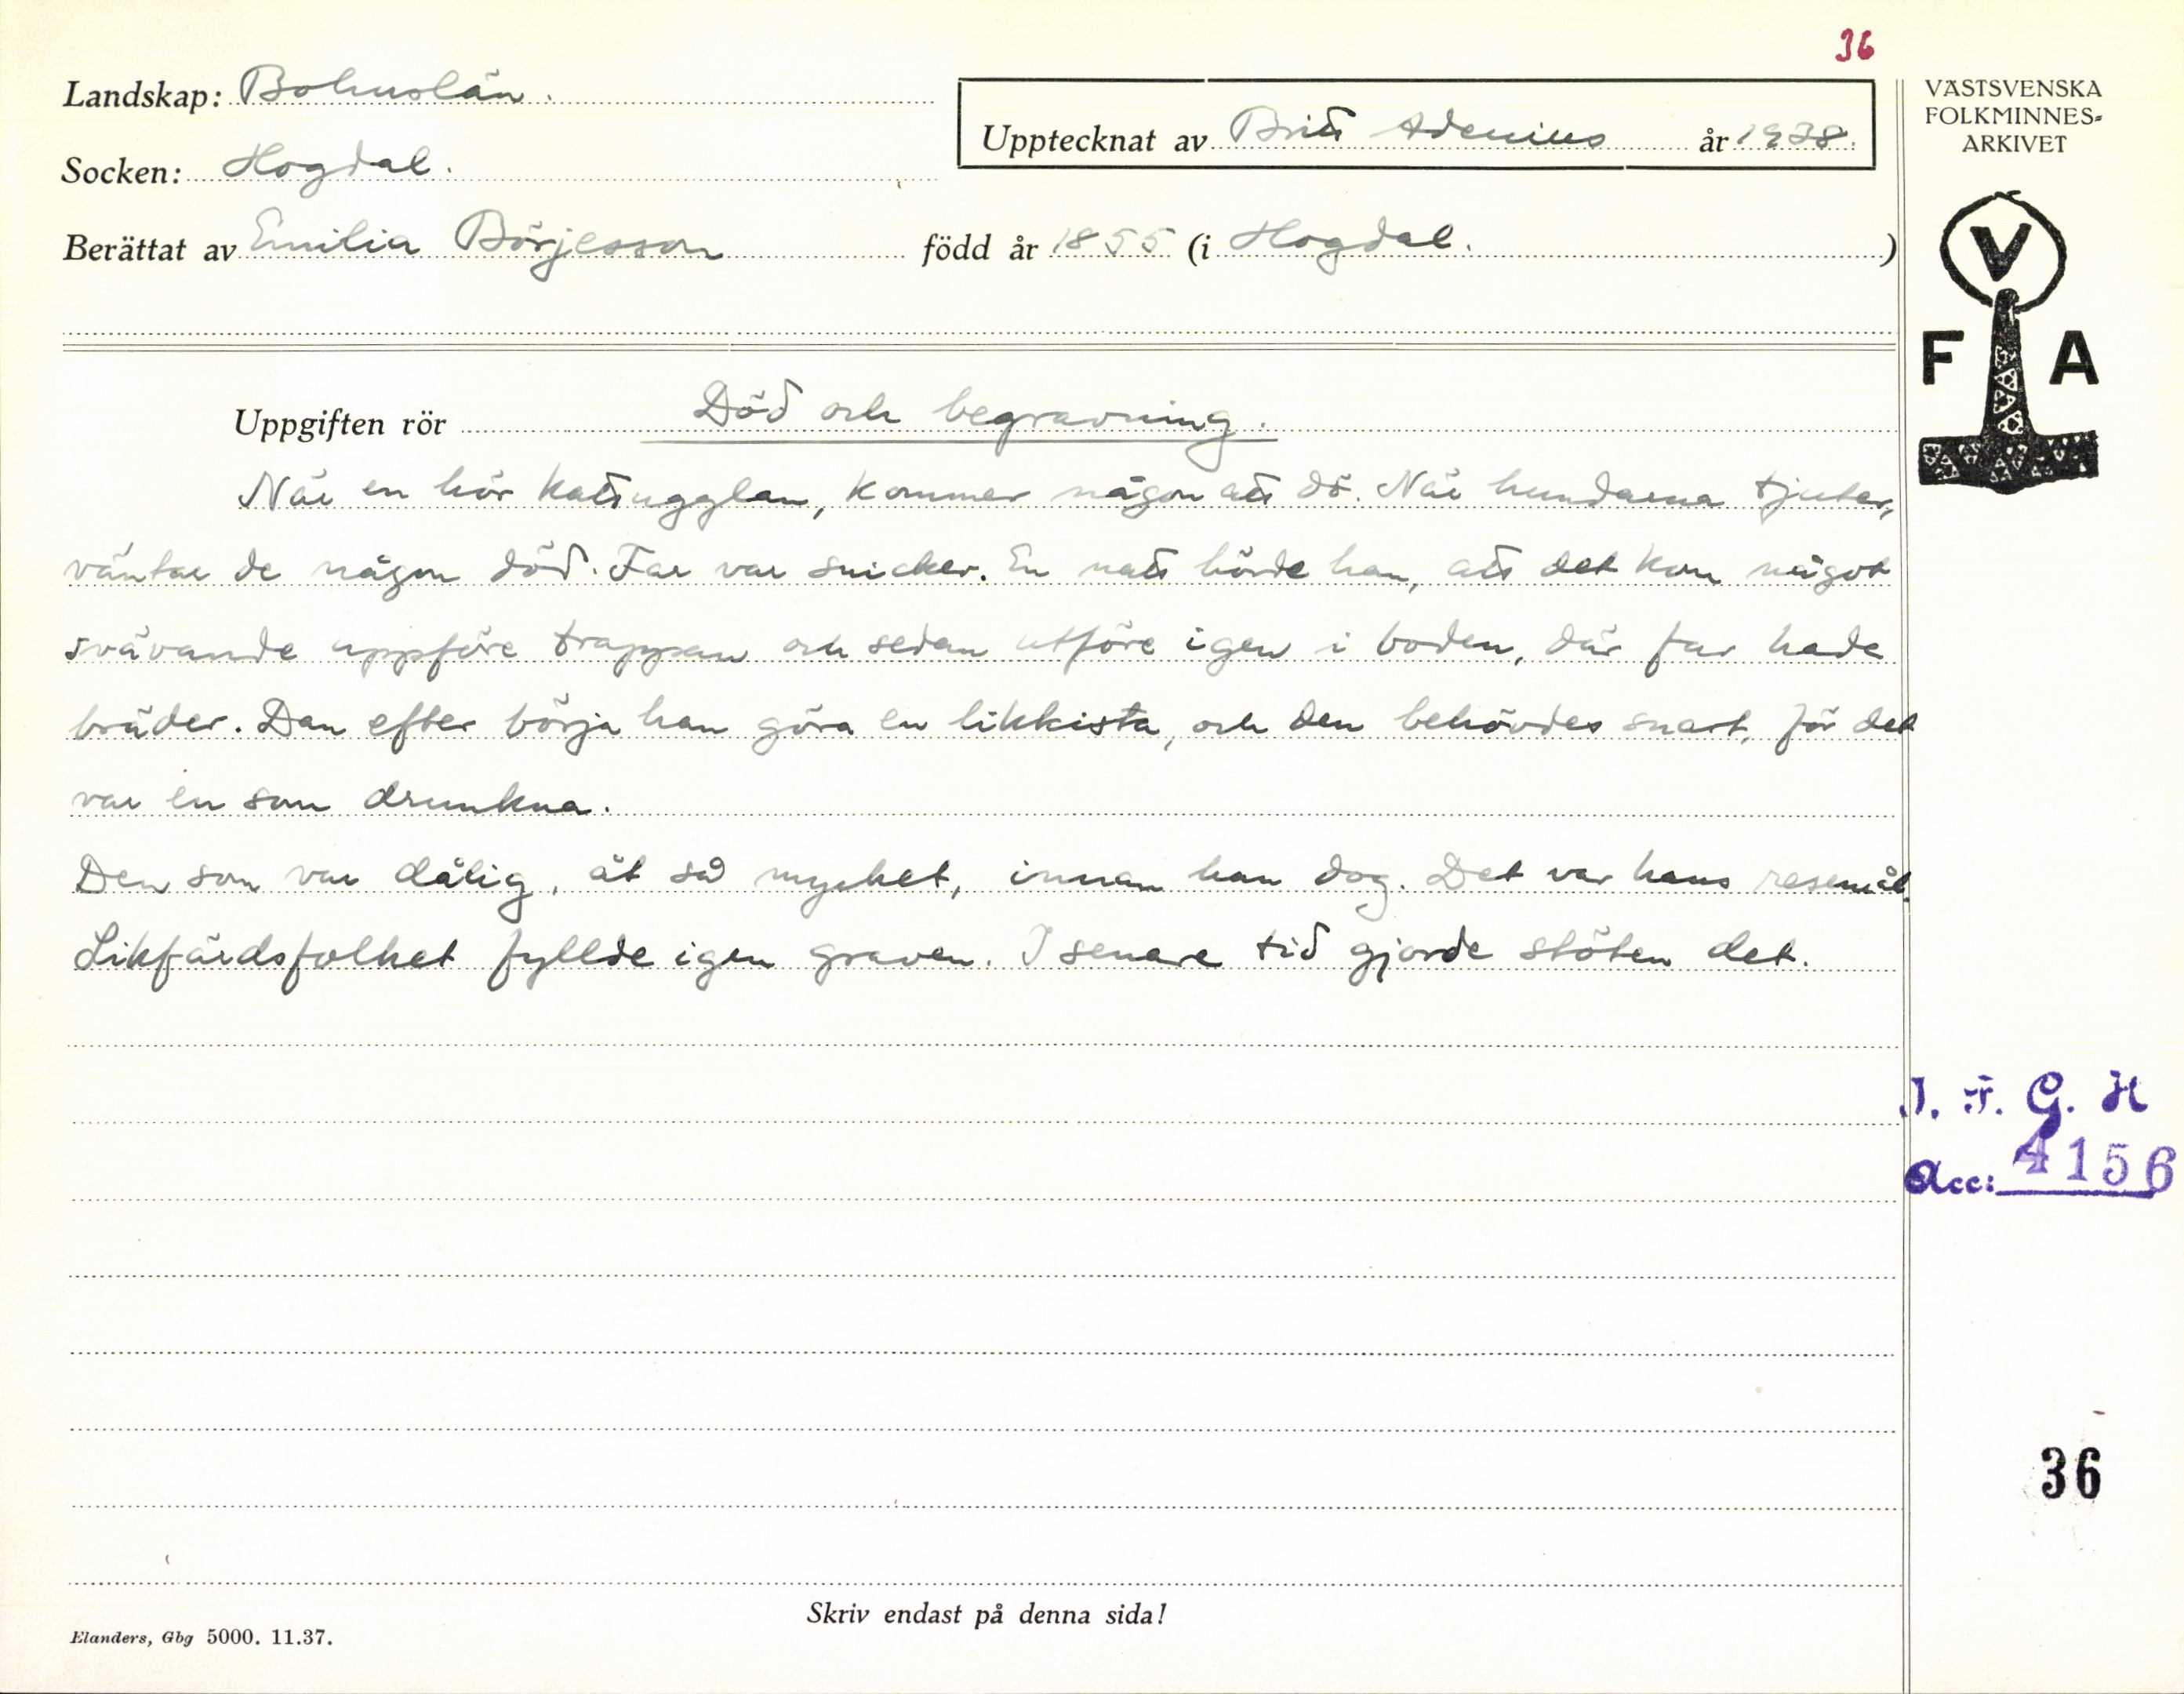 36
Landskap: Bohuslän.
Upptecknat av Britt Adenius år 1938.
Socken: Hogdal.
Berättat av Emilia Börjesson född år 1855 (i Hogdal. )
VÄSTSVENSKA
FOLKMINNES-
ARKIVET
V
F A
Uppgiften rör Död och begravning.
När en hör kattugglan, kommer någon att dö. När hundarna tjuter,
väntar de någon död. Far var snicker. En natt hörde han, att det kom något
svävande uppföre trappan och sedan utföre igen i boden, där far hade
bräder. Dan efter börja han göra en likkista, och den behövdes snart, för det
var en som drunkna.
Den som var dålig, åt så mycket, innan han dog. Det var hans resemål.
Likfärdsfolket fyllde igen graven. I senare tid gjorde stöten det.
I. F. G. H
Acc: 4156
36
Skriv endast på denna sida!
Elanders, Gbg 5000. 11.37.